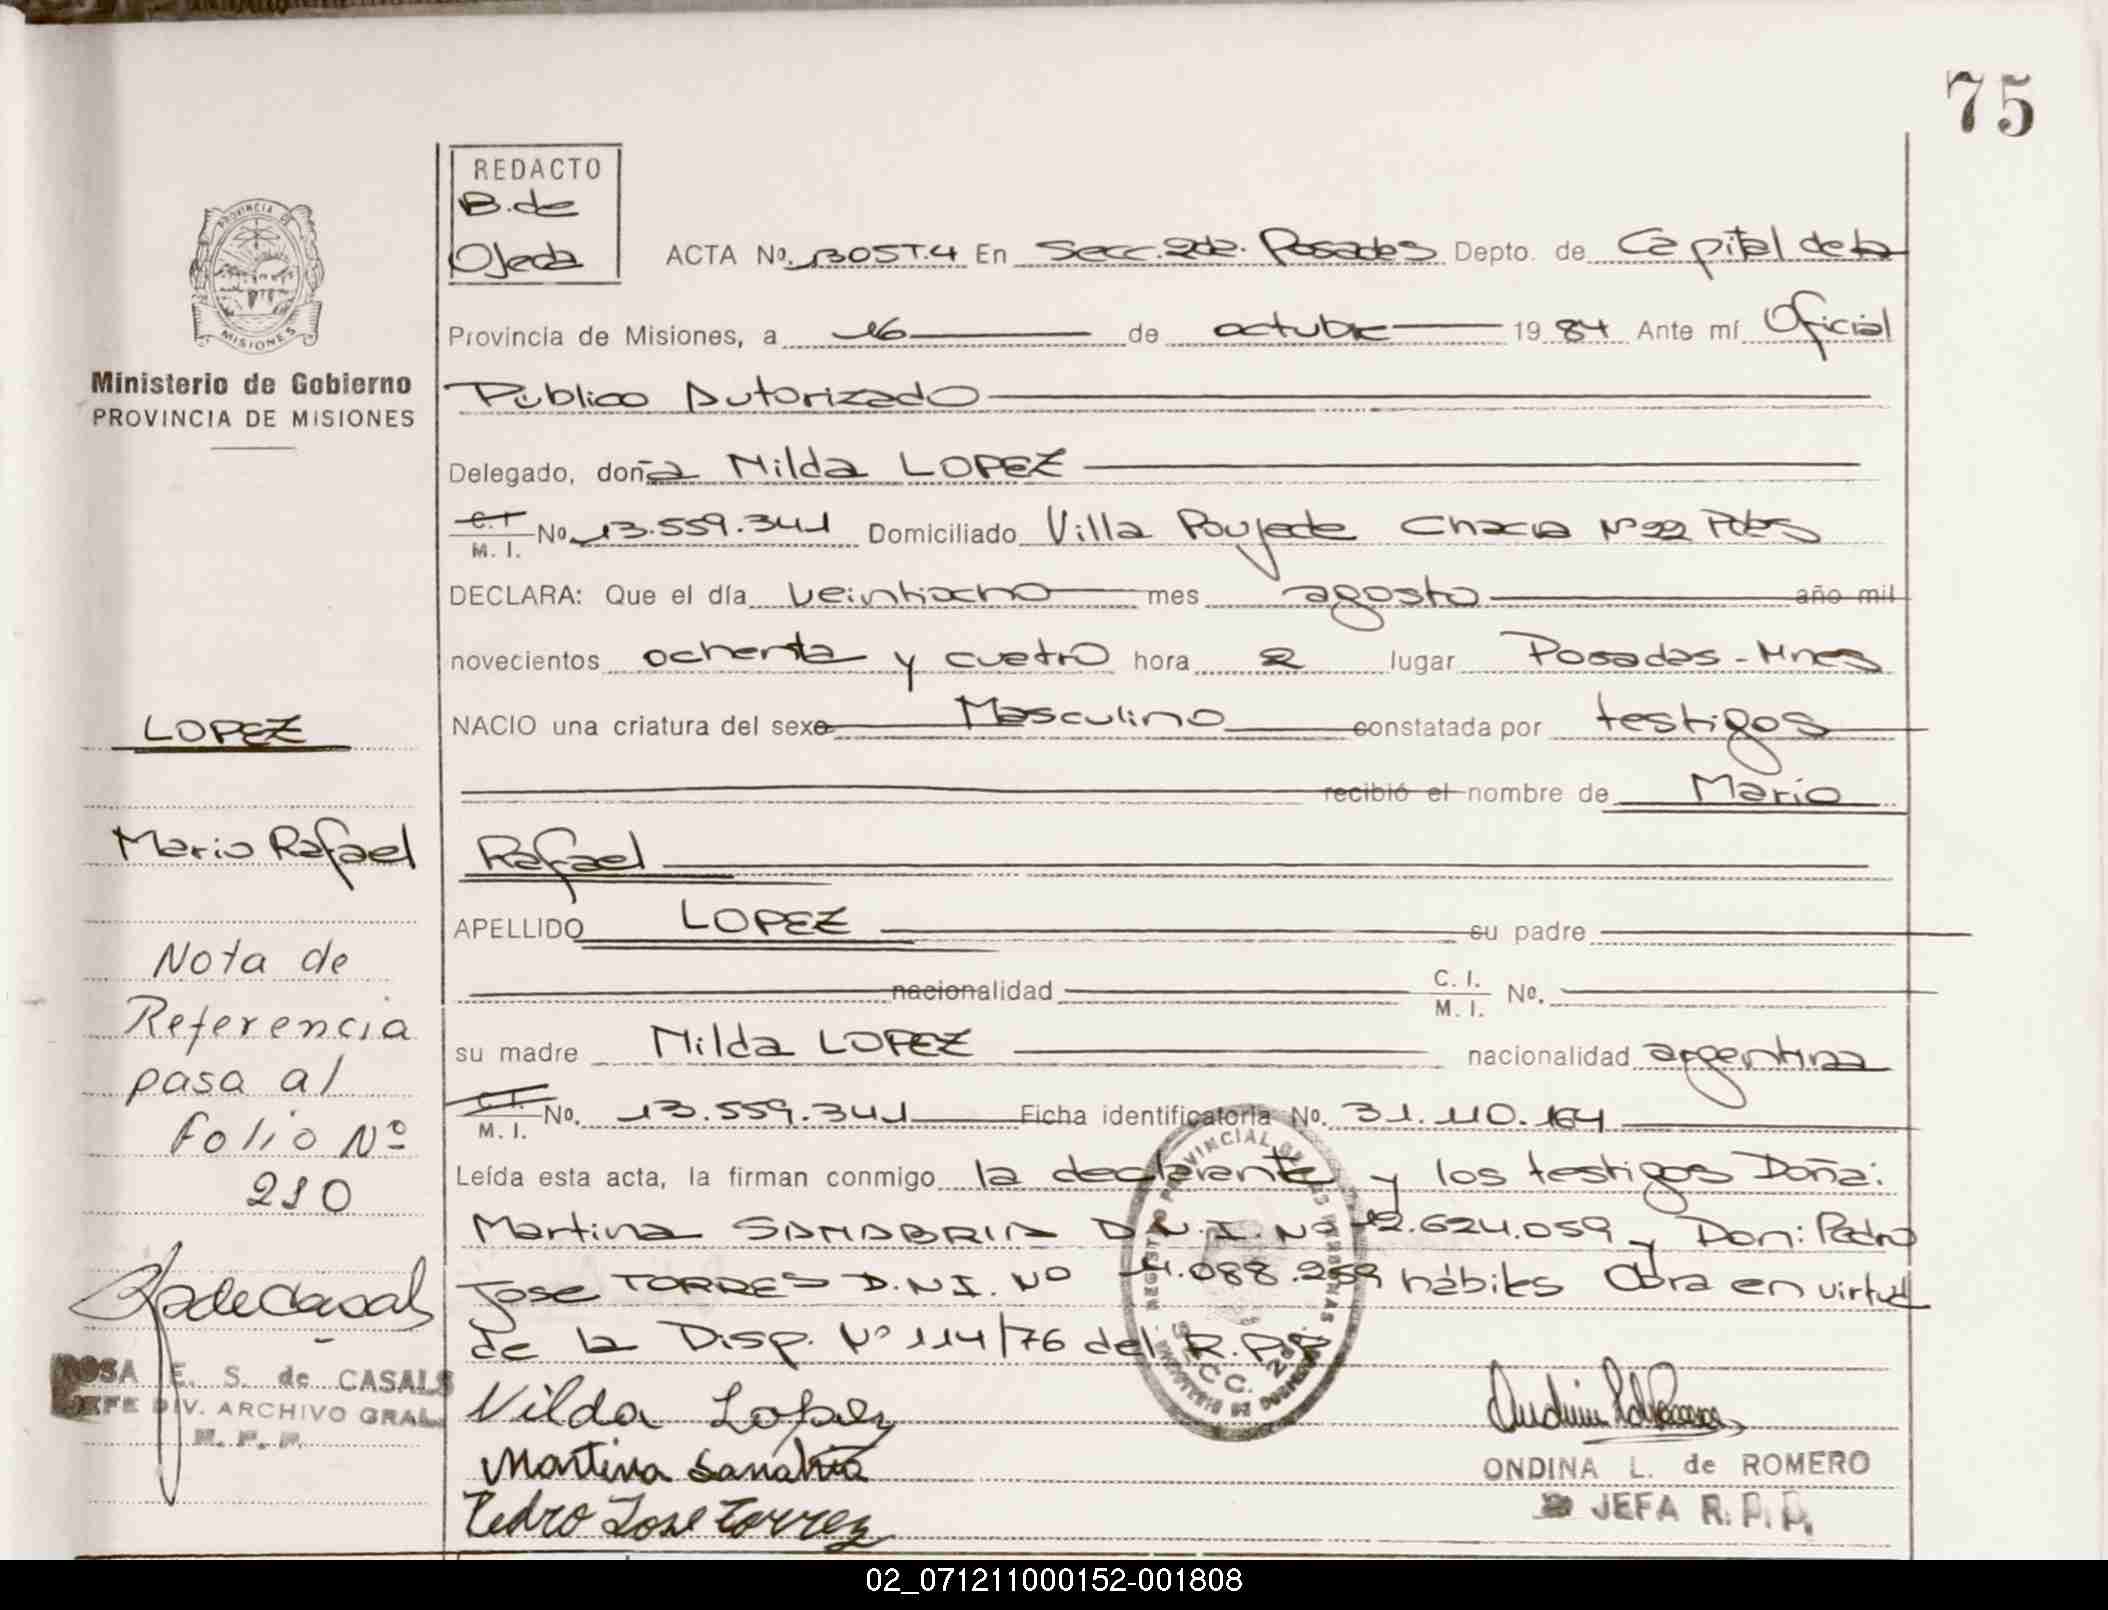 75
REDACTO
B. de
Ojeda
ACTA Nº 1305T.4 En Secc. 2da. Posadas Depto. de Capital de la
Provincia de Misiones, a 16 de octubre 1984 Ante mí Oficial
Público Autorizado
Delegado, doña Nilda LOPEZ
C.I. M. I. No 13.559.341 Domiciliado Villa Poujade Chacra Nº 22 Pdas
DECLARA: Que el día veintiocho mes agosto año mil
novecientos ochenta y cuatro hora 2 lugar Posadas - Mnes
NACIO una criatura del sexo Masculino constatada por testigos
recibió el nombre de Mario
Rafael
APELLIDO LOPEZ su padre
nacionalidad C. I. M. I. No.
su madre Nilda LOPEZ nacionalidad argentina
C.I. M. I. No. 13.559.341 Ficha identificatoria No. 31.110.164
Leída esta acta, la firman conmigo la declarante y los testigos Doña:
Martina SANABRIA D.N.I. Nº 12.624.059 y Don: Pedro
Jose TORRES D.N.I. Nº 14.088.259 hábiles Obra en virtud
de la Disp. Nº 114/76 del R.P.P.
Nilda Lopez
Martina Sanabria
Pedro Jose Torrez
ONDINA L. de ROMERO
JEFA R. P. P.
PROVINCIA DE
MISIONES
Ministerio de Gobierno
PROVINCIA DE MISIONES
LOPEZ
Mario Rafael
Nota de
Referencia
pasa al
Folio Nº
210
ROSA E. S. de CASALS
JEFE DIV. ARCHIVO GRAL.
R. P. P.
SECC. 2da
02_071211000152-001808